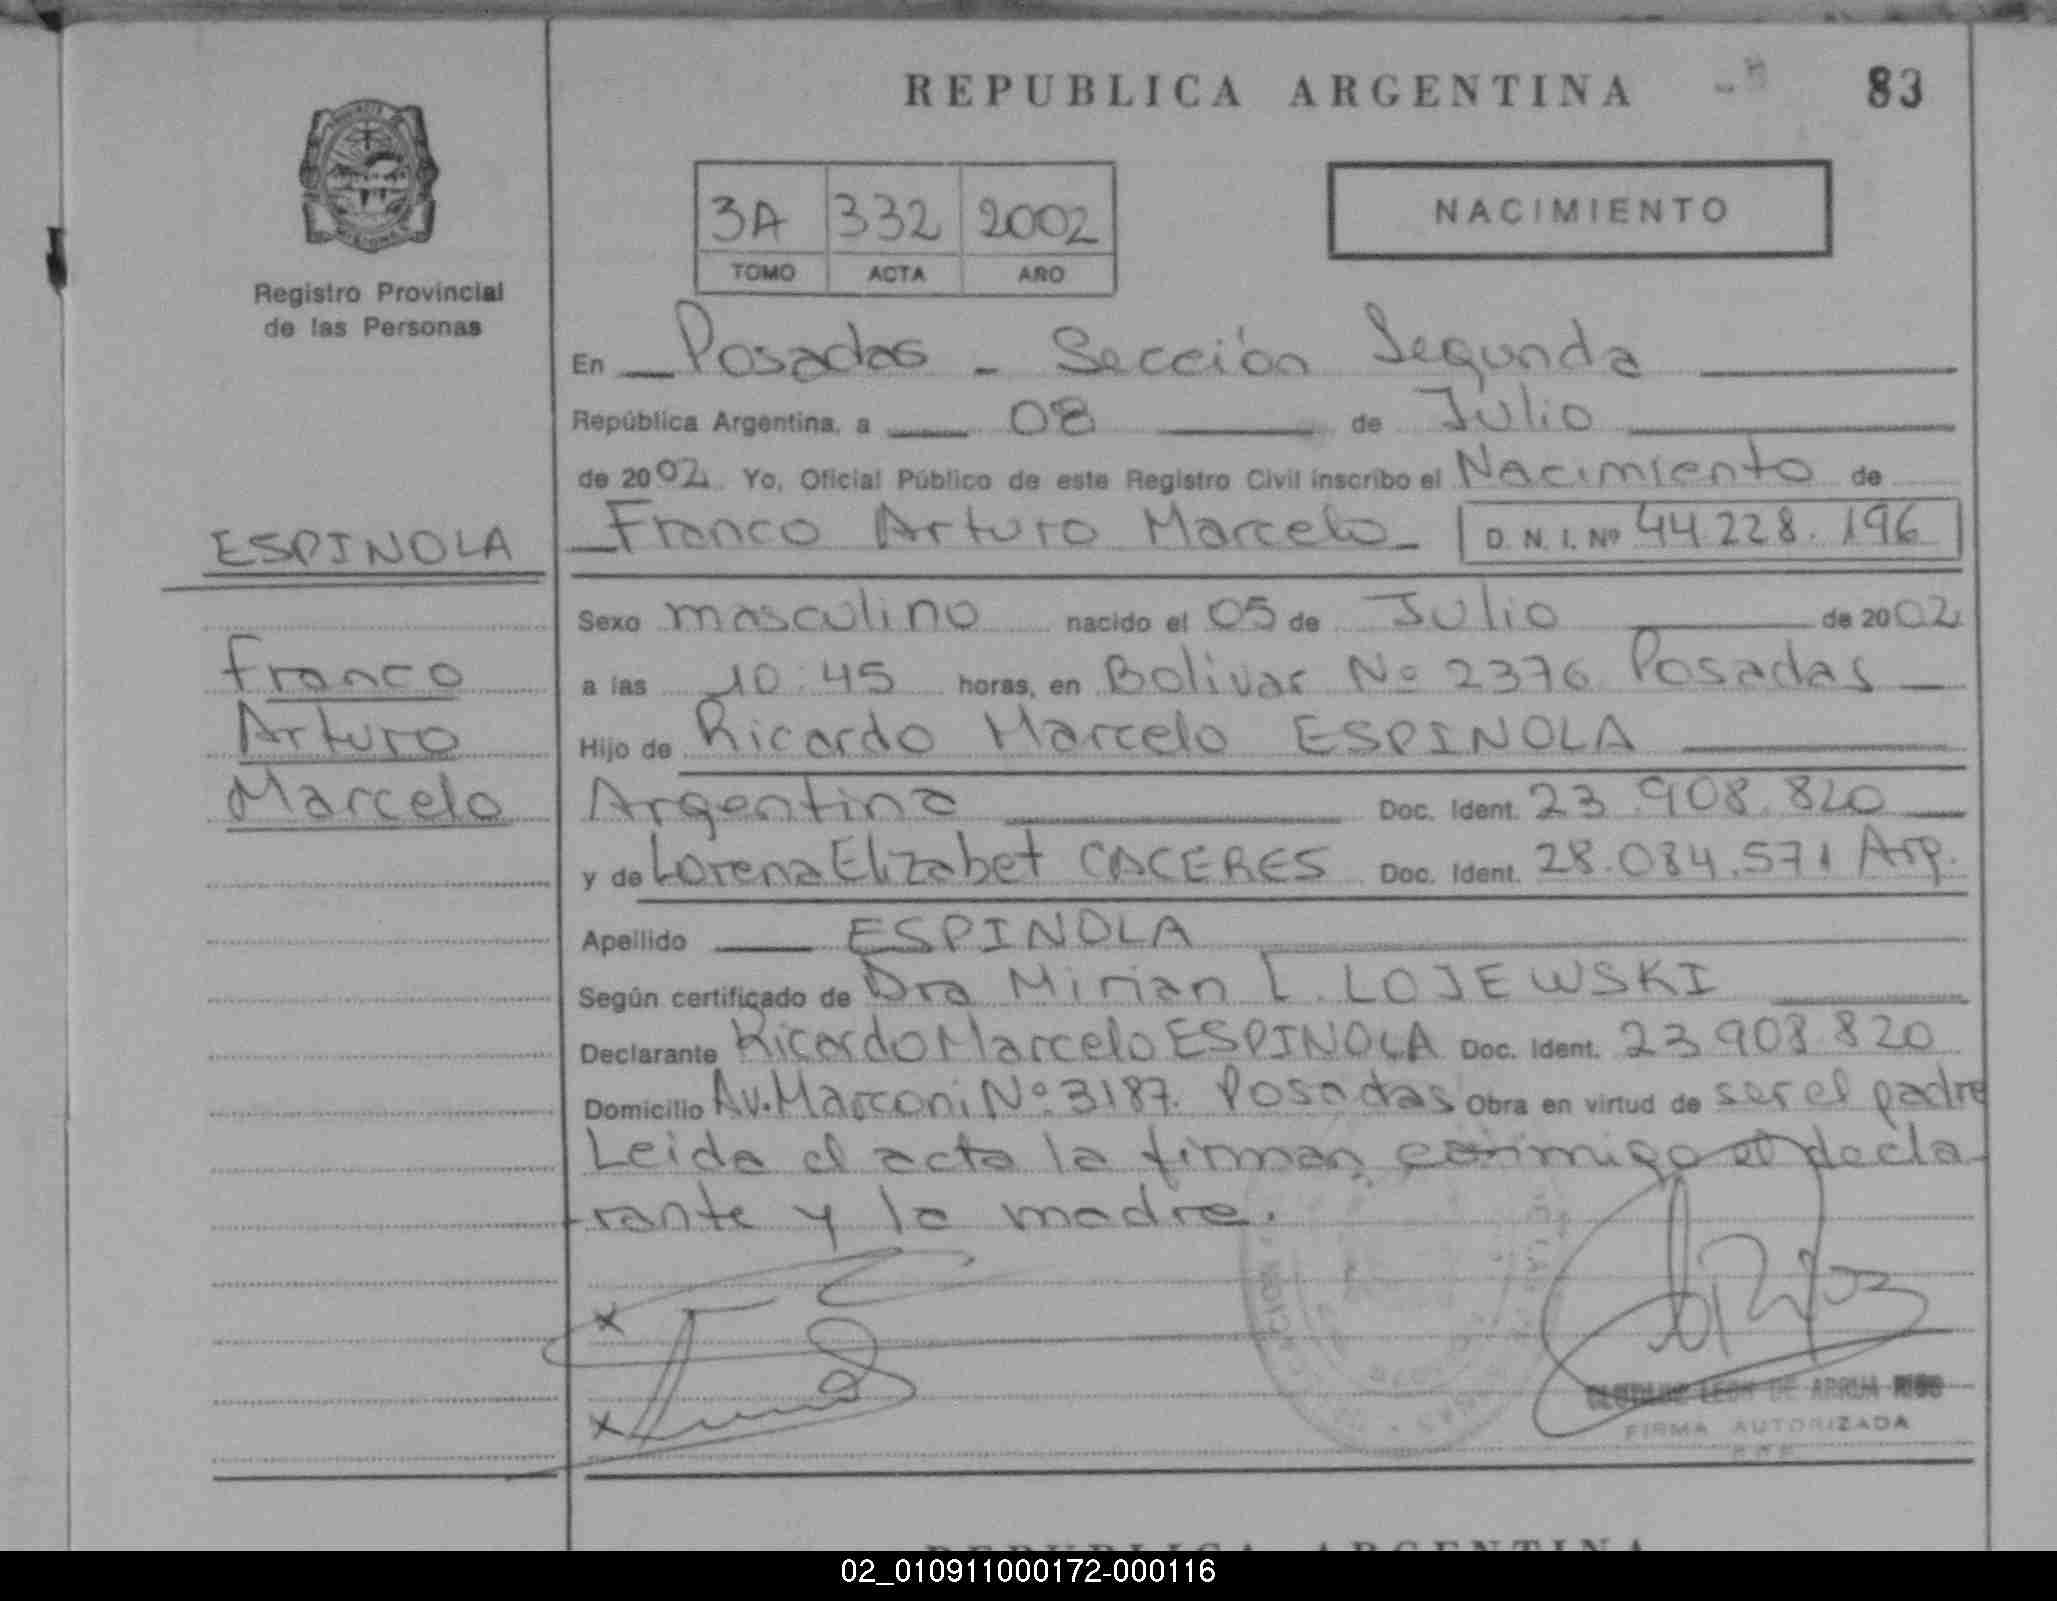 REPUBLICA ARGENTINA
83
3A 332 2002
TOMO ACTA AÑO
NACIMIENTO
Registro Provincial
de las Personas
En Posadas - Sección Segunda
República Argentina, a 08 de Julio
de 2002 Yo, Oficial Público de este Registro Civil inscribo el Nacimiento de
Franco Arturo Marcelo D. N. I. Nº 44.228.196
ESPINOLA
Franco
Arturo
Marcelo
Sexo masculino nacido el 05 de Julio de 2002
a las 10:45 horas, en Bolivar Nº 2376 Posadas
Hijo de Ricardo Marcelo ESPINOLA
Argentina Doc. Ident. 23.908.820
y de Lorena Elizabet CACERES Doc. Ident. 28.084.571 Arg.
Apellido ESPINOLA
Según certificado de Dra Mirian L. LOJEWSKI
Declarante Ricardo Marcelo ESPINOLA Doc. Ident. 23 908 820
Domicilio Av. Marconi Nº 3187. Posadas Obra en virtud de ser el padre
Leida el acta la firman conmigo el decla
rante y la madre.
LEON DE ARRUA
FIRMA AUTORIZADA
REPUBLICA ARGENTINA
02_010911000172-000116